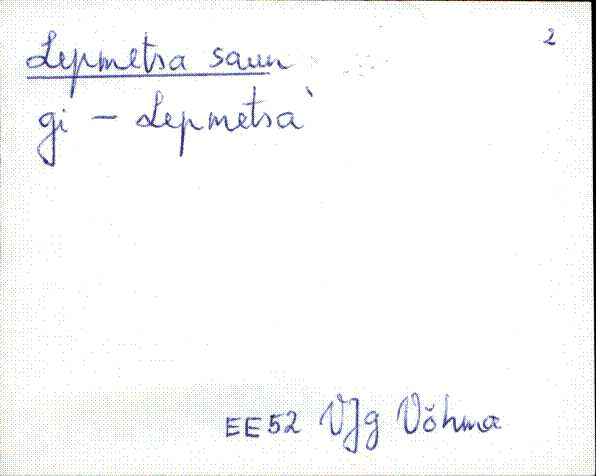 2
Lepmetsa saun
gi – Lepmetsa`
EE 52 VJg Võhma